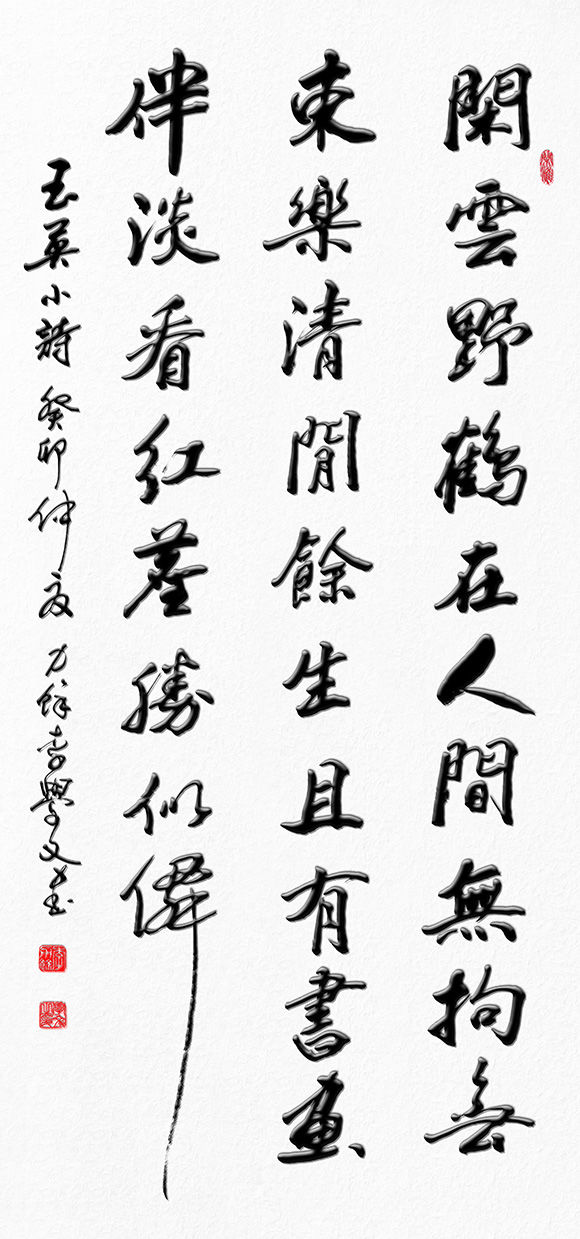 閑雲野鶴在人間無拘無
束樂清閒餘生且有書畫
伴淡看紅塵勝似僊
玉英小詩 癸卯仲夏 李學文书